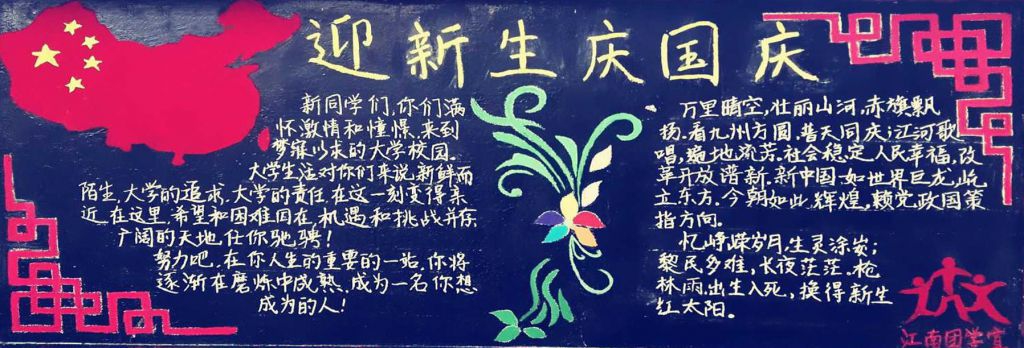 迎新生庆国庆
新同学们,你们满
怀激情和憧憬,来到
梦寐以来的大学校园。
大学生活对你们来说,新鲜而
陌生,大学的追求,大学的责任,在这一刻变得亲
近,在这里,希望和困难同在,机遇和挑战并存
广阔的天地任你驰骋!
努力吧,在你人生的重要的一站,你将
逐渐在磨炼中成熟,成为一名你想
成为的人!
万里晴空,壮丽山河,赤旗飘
扬,看九州方圆,普天同庆;江河歌
唱,遍地流芳。社会稳定,人民幸福,改
革开放谱新,新中国如世界巨龙,屹
立东方,今朝如此,辉煌,赖党政国策
指方向。
忆峥嵘岁月,生灵涂炭;
黎民多难,长夜茫茫。枪
林雨,出生入死,换得新生
红太阳。
江南团学宣